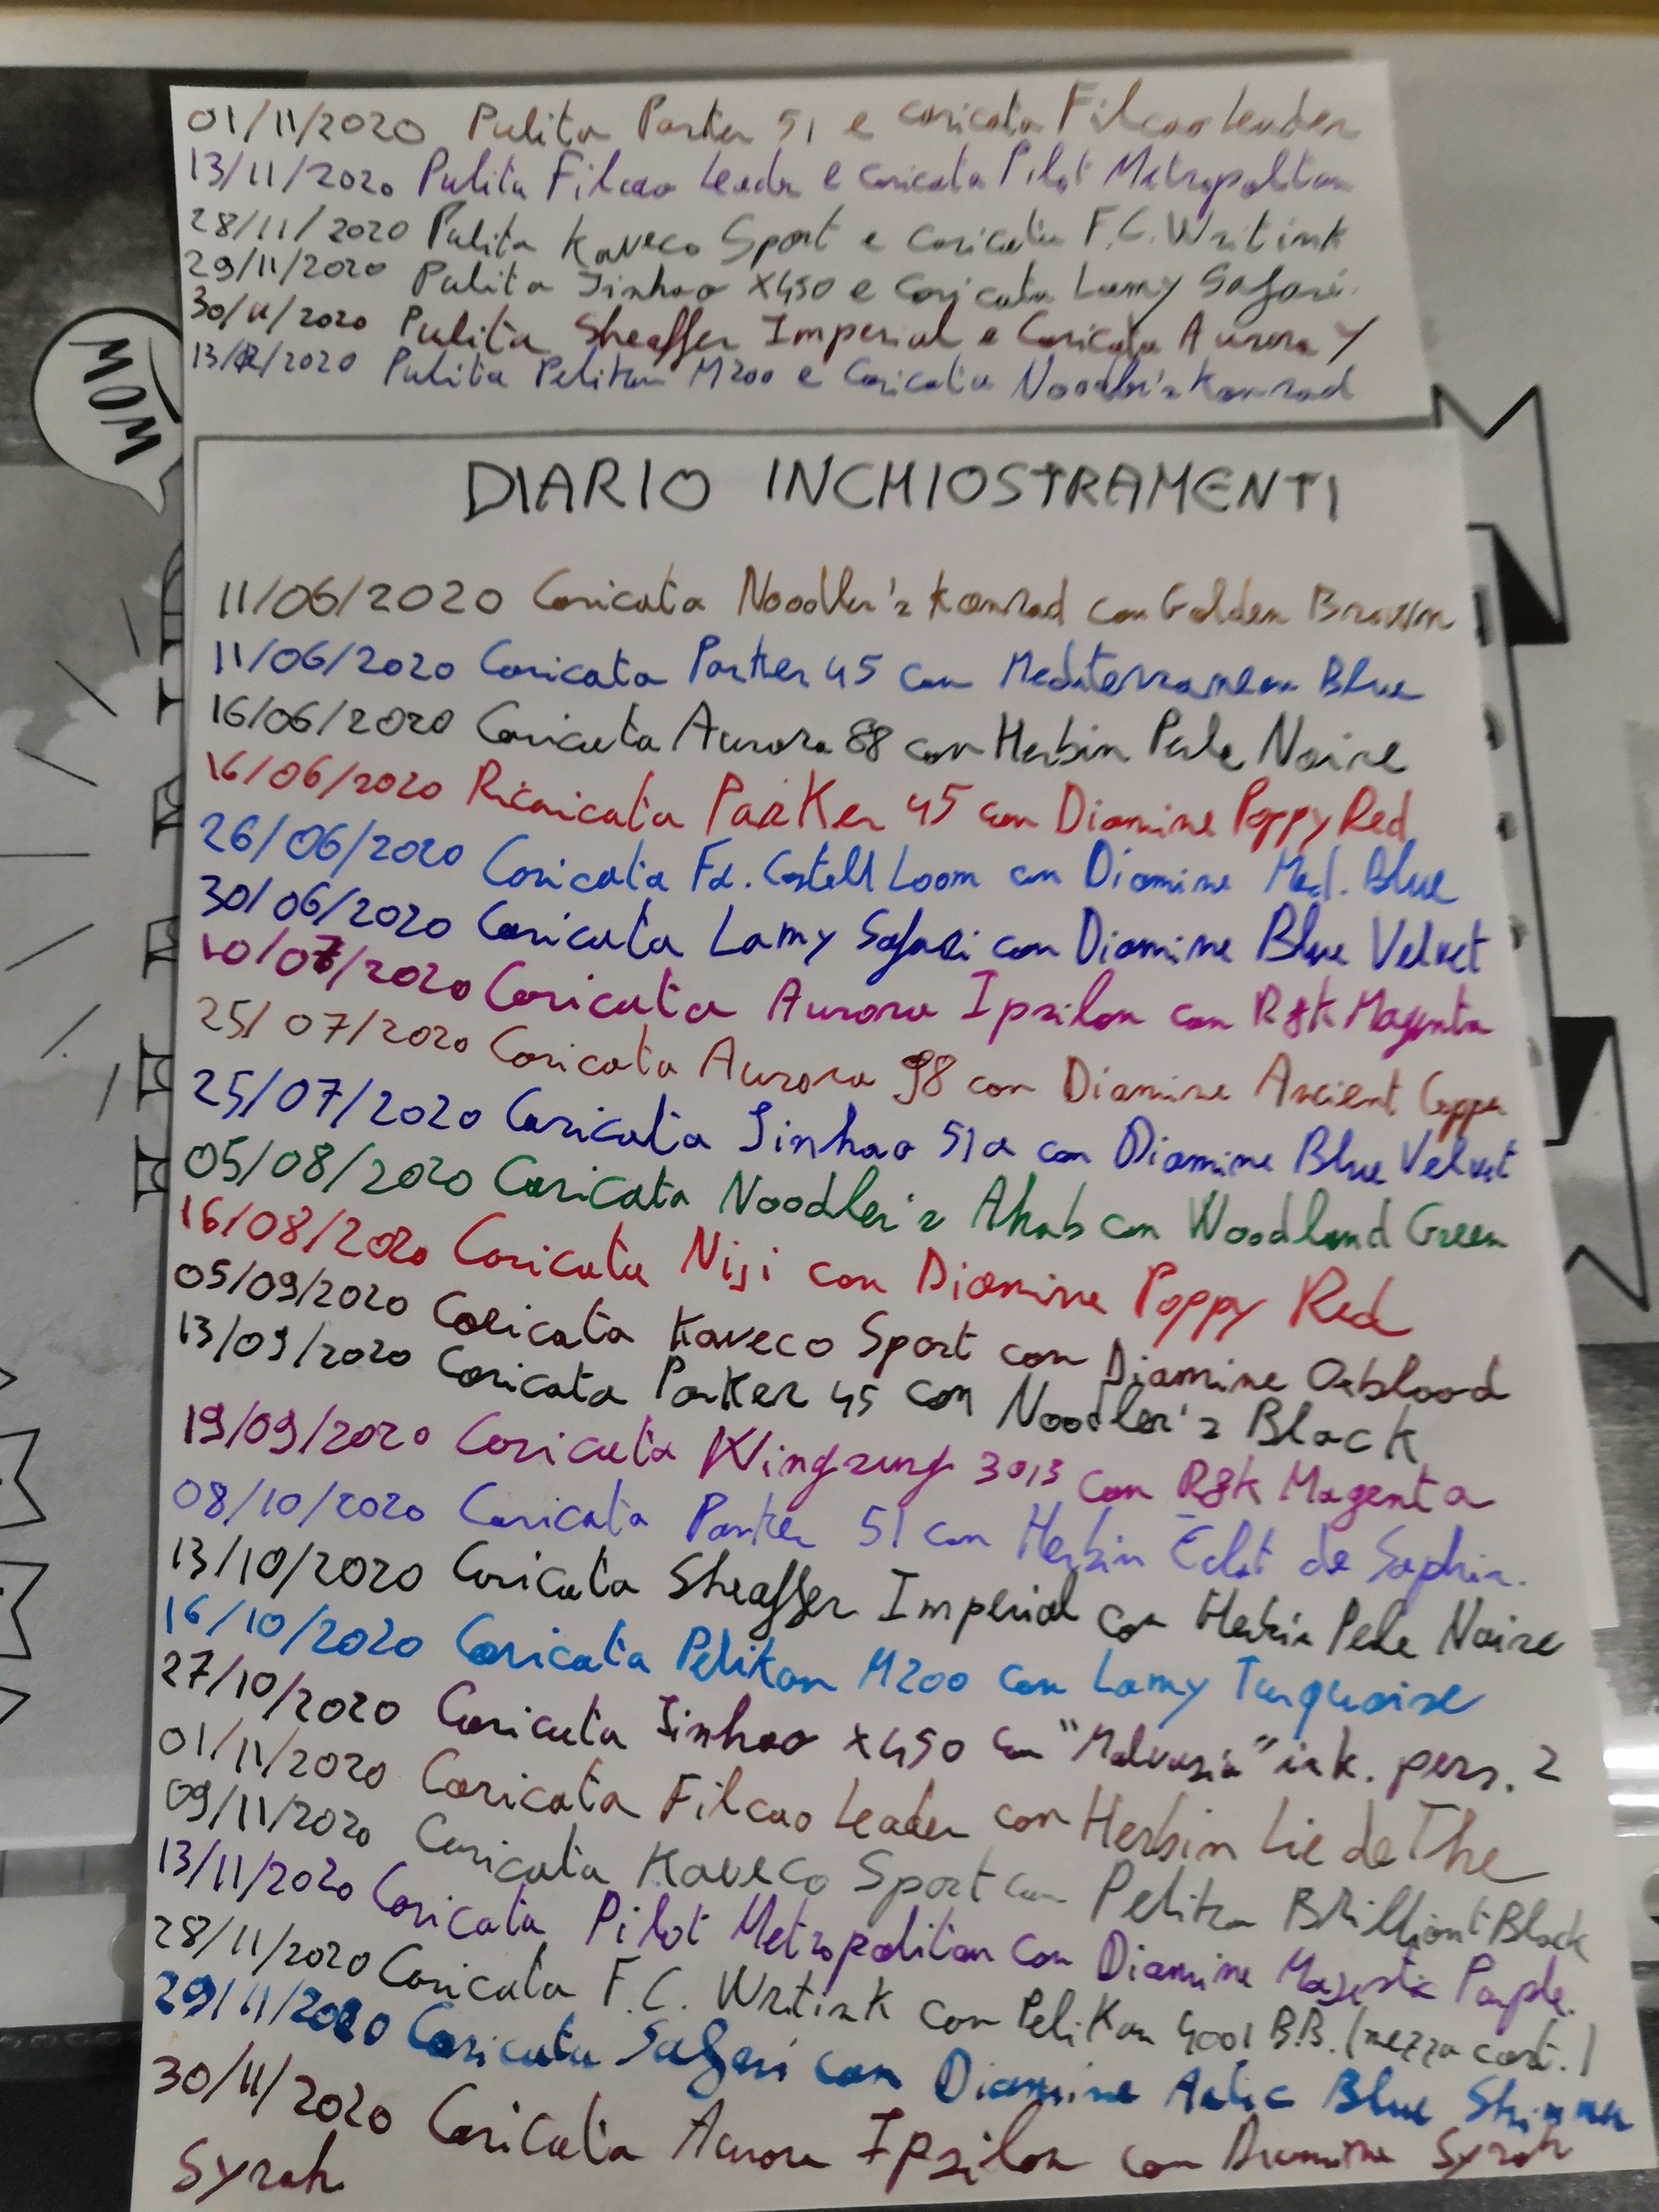 01/11/2020 Pulita Parker 51 e caricata Filcao Leader
13/11/2020 Pulita Filcao Leader e caricata Pilot Metropolitan
28/11/2020 Pulita Kaveco Sport e caricata F.C. Writink
29/11/2020 Pulita Jinhao X450 e caricata Lamy Safari
30/11/2020 Pulita Sheaffer Imperial e Caricata Aurora Y
13/12/2020 Pulita Pelikan M200 e Caricata Noodler's Konrad
WOW
DIARIO INCHIOSTRAMENTI
11/06/2020 Caricata Noodler's Konrad con Golden Brown
11/06/2020 Caricata Parker 45 con Mediterranean Blue
16/06/2020 Caricata Aurora 88 con Herbin Perle Noire
16/06/2020 Ricaricata Parker 45 con Diamine Poppy Red
26/06/2020 Caricata Fa. Castell Loom con Diamine Med. Blue
30/06/2020 Caricata Lamy Safari con Diamine Blue Velvet
10/07/2020 Caricata Aurora Ipsilon con R&K Magenta
25/07/2020 Caricata Aurora 98 con Diamine Ancient Copper
25/07/2020 Caricata Jinhao 51a con Diamine Blue Velvet
05/08/2020 Caricata Noodler's Ahab con Woodland Green
16/08/2020 Caricata Nisi con Diamine Poppy Red
05/09/2020 Caricata Kaveco Sport con Diamine Oxblood
13/09/2020 Caricata Parker 45 con Noodler's Black
19/09/2020 Caricata Wingsung 3013 con R&K Magenta
08/10/2020 Caricata Parker 51 con Herbin Eclat de Saphir.
13/10/2020 Caricata Sheaffer Imperial con Herbin Perle Noire
16/10/2020 Caricata Pelikan M200 con Lamy Turquoise
27/10/2020 Caricata Jinhao X450 con "Malvasia" ink. pers. 2
01/11/2020 Caricata Filcao Leader con Herbin Lie de The
09/11/2020 Caricata Kaveco Sport con Pelikan Brilliant Black
13/11/2020 Caricata Pilot Metropolitan con Diamine Majestic Purple.
28/11/2020 Caricata F.C. Writink con Pelikan 4001 B.B. (mezza cart.)
29/11/2020 Caricata Safari con Diamine Artic Blue Shimmer
30/11/2020 Caricata Aurora Ipsilon con Diamine Syrah
Syrah